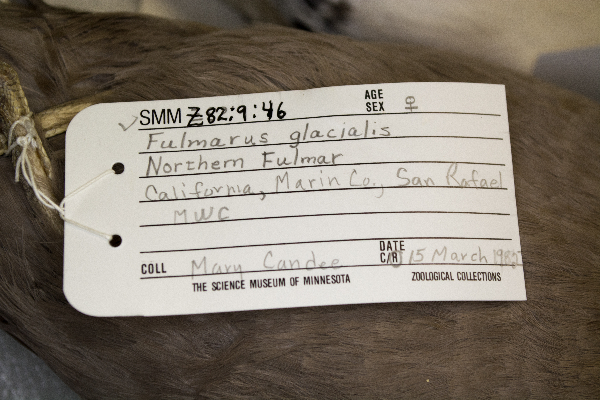 AGE
SMM Z82:9:46 SEX ♀
Fulmarus glacialis
Northern Fulmar
California, Marin Co., San Rafael
MWC
DATE
COLL Mary Candee C/R 15 March
THE SCIENCE MUSEUM OF MINNESOTA ZOOLOGICAL COLLECTIONS